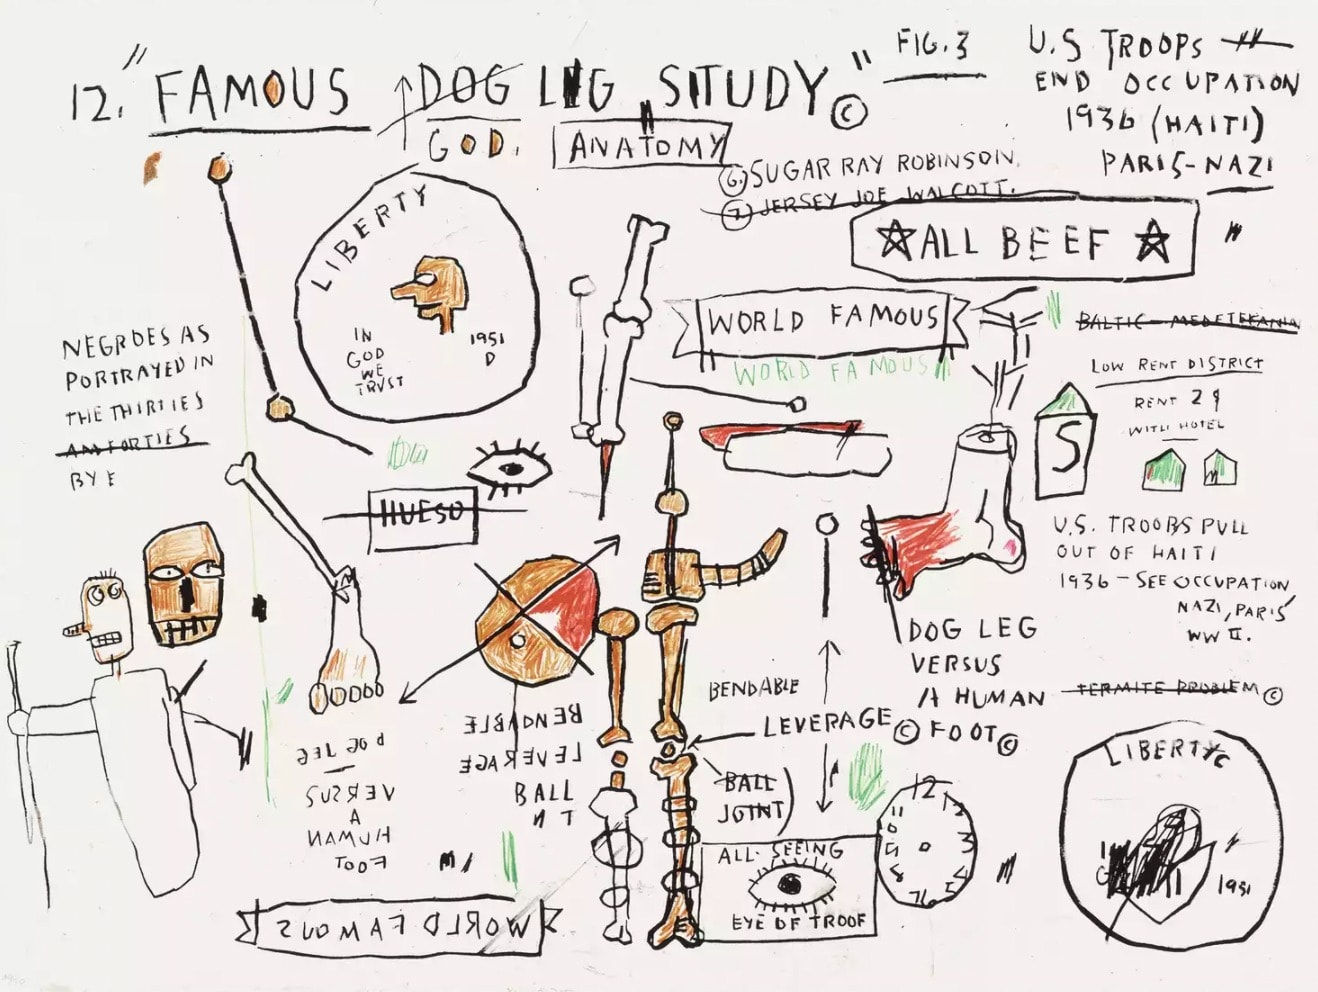 12. "FAMOUS DOG LEG STUDY"©
GOD.
ANATOMY
FIG. 3
U.S TROOPS
END OCCUPATION
1936 (HAITI)
PARIS-NAZI
6. SUGAR RAY ROBINSON.
7. JERSEY JOE WALCOTT.
☆ALL BEEF☆
LIBERTY
IN
GOD
WE
TRVST
1951
D
WORLD FAMOUS
WORLD FAMOUS
BALTIC - MEDETERANIA
LOW RENT DISTRICT
RENT 2
WITH HOTEL
S
NEGROES AS
PORTRAYED IN
THE THIRTIES
AN FORTIES
BY E
HUESO
U.S. TROOPS PULL
OUT OF HAITI
1936 - SEE OCCUPATION
NAZI, PARIS
WW II.
TERMITE PROBLEM ©
DOG LEG
VERSUS
A HUMAN
FOOT©
BENDABLE
LEVERAGE©
BALL
JOINT)
DOG LEG
VERSUS
A
HUMAN
FOOT
BENDABLE
LEVERAGE
BALL
N T
ALL-SEEING
EYE OF TROOF
12
LIBERTY
1951
WORLD FAMOUS